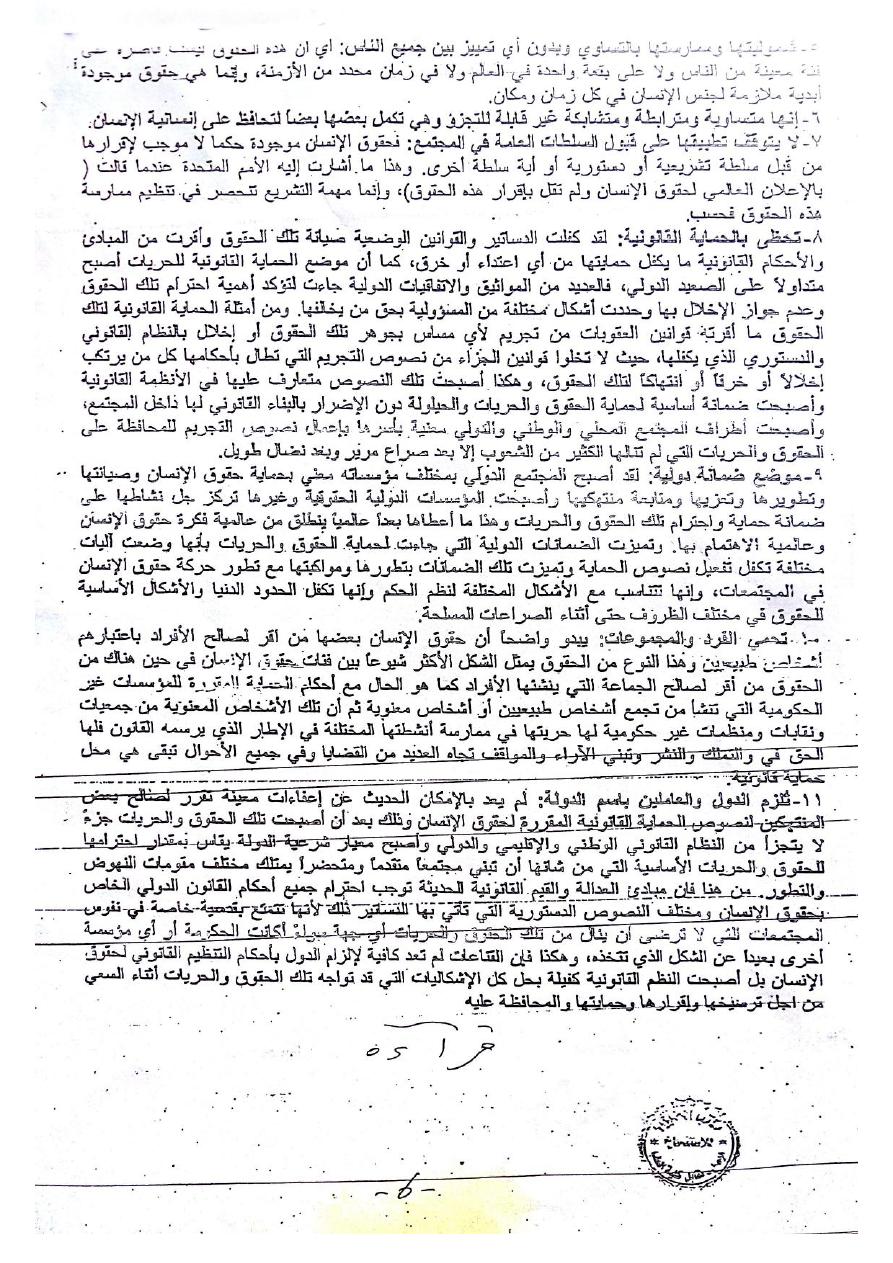 ٥-شموليتها وممارستها بالتساوي وبدون أي تمييز بين جميع الناس: أي ان هذه الحقوق ليست قاصرة على
فئة معينة من الناس ولا على بقعة واحدة في العالم ولا في زمان محدد من الأزمنة، وإنما هي حقوق موجودة
أبدية ملازمة لجنس الإنسان في كل زمان ومكان.
٦-إنها متساوية ومترابطة ومتشابكة غير قابلة للتجزؤ وهي تكمل بعضها بعضاً لتحافظ على إنسانية الإنسان.
٧-لا يتوقف تطبيقها على قبول السلطات العامة في المجتمع: فحقوق الإنسان موجودة حكما لا موجب لإقرارها
من قبل سلطة تشريعية أو دستورية أو أية سلطة أخرى. وهذا ما أشارت إليه الأمم المتحدة عندما قالت (
بالإعلان العالمي لحقوق الإنسان ولم تقل بإقرار هذه الحقوق)، وإنما مهمة التشريع تنحصر في تنظيم ممارسة
هذه الحقوق فحسب.
٨-تحظى بالحماية القانونية: لقد كفلت الدساتير والقوانين الوضعية صيانة تلك الحقوق وأقرت من المبادئ
والأحكام القانونية ما يكفل حمايتها من أي اعتداء أو خرق، كما أن موضع الحماية القانونية للحريات أصبح
متداولاً على الصعيد الدولي، فالعديد من المواثيق والاتفاقيات الدولية جاءت لتؤكد أهمية احترام تلك الحقوق
وعدم جواز الإخلال بها وحددت أشكال مختلفة من المسؤولية بحق من يخالفها. ومن أمثلة الحماية القانونية لتلك
الحقوق ما أقرته قوانين العقوبات من تجريم لأي مساس بجوهر تلك الحقوق أو إخلال بالنظام القانوني
والدستوري الذي يكفلها، حيث لا تخلوا قوانين الجزاء من نصوص التجريم التي تطال بأحكامها كل من يرتكب
إخلالاً أو خرقاً أو انتهاكاً لتلك الحقوق، وهكذا أصبحت تلك النصوص متعارف عليها في الأنظمة القانونية
وأصبحت ضمانة أساسية لحماية الحقوق والحريات والحيلولة دون الإضرار بالبناء القانوني لها داخل المجتمع،
وأصبحت أطراف المجتمع المحلي والوطني والدولي معنية بأسرها بإعمال نصوص التجريم للمحافظة على
الحقوق والحريات التي لم تنالها الكثير من الشعوب إلا بعد صراع مرير وبعد نضال طويل.
٩-موضع ضمانة دولية: لقد أصبح المجتمع الدولي بمختلف مؤسساته معني بحماية حقوق الإنسان وصيانتها
وتطويرها وتعزيزها ومتابعة منتهكيها وأصبحت المؤسسات الدولية الحقوقية وغيرها تركز جل نشاطها على
ضمانة حماية واحترام تلك الحقوق والحريات وهذا ما أعطاها بعداً عالمياً ينطلق من عالمية فكرة حقوق الإنسان
وعالمية الاهتمام بها. وتميزت الضمانات الدولية التي جاءت لحماية الحقوق والحريات بأنها وضعت آليات
مختلفة تكفل تفعيل نصوص الحماية وتميزت تلك الضمانات بتطورها ومواكبتها مع تطور حركة حقوق الإنسان
في المجتمعات، وإنها تتناسب مع الأشكال المختلفة لنظم الحكم وإنها تكفل الحدود الدنيا والأشكال الأساسية
للحقوق في مختلف الظروف حتى أثناء الصراعات المسلحة.
١٠- تحمي الفرد والمجموعات: يبدو واضحاً أن حقوق الإنسان بعضها من اقر لصالح الأفراد باعتبارهم
أشخاص طبيعيين وهذا النوع من الحقوق يمثل الشكل الأكثر شيوعاً بين فئات حقوق الإنسان في حين هناك من
الحقوق من أقر لصالح الجماعة التي ينشئها الأفراد كما هو الحال مع أحكام الحماية المقررة للمؤسسات غير
الحكومية التي تنشأ من تجمع أشخاص طبيعيين أو أشخاص معنوية ثم أن تلك الأشخاص المعنوية من جمعيات
ونقابات ومنظمات غير حكومية لها حريتها في ممارسة أنشطتها المختلفة في الإطار الذي يرسمه القانون فلها
الحق في والتملك والنشر وتبني الآراء والمواقف تجاه العديد من القضايا وفي جميع الأحوال تبقى هي محل
حماية قانونية.
١١-تلزم الدول والعاملين باسم الدولة: لم يعد بالإمكان الحديث عن إعفاءات معينة تقرر لصالح بعض
المنتهكين لنصوص الحماية القانونية المقررة لحقوق الإنسان وذلك بعد أن أصبحت تلك الحقوق والحريات جزءً
لا يتجزأ من النظام القانوني الوطني والإقليمي والدولي وأصبح معيار شرعية الدولة يقاس بمقدار احترامها
للحقوق والحريات الأساسية التي من شانها أن تبني مجتمعاً متقدماً ومتحضراً يمتلك مختلف مقومات النهوض
والتطور. من هنا فإن مبادئ العدالة والقيم القانونية الحديثة توجب احترام جميع أحكام القانون الدولي الخاص
بحقوق الإنسان ومختلف النصوص الدستورية التي تأتي بها الدساتير ذلك لأنها تتمتع بقدسية خاصة في نفوس
المجتمعات التي لا ترضى أن ينال من تلك الحقوق والحريات أي جهة سواءً أكانت الحكومة أو أي مؤسسة
أخرى بعيداً عن الشكل الذي تتخذه، وهكذا فإن القناعات لم تعد كافية لإلزام الدول بأحكام التنظيم القانوني لحقوق
الإنسان بل أصبحت النظم القانونية كفيلة بحل كل الإشكاليات التي قد تواجه تلك الحقوق والحريات أثناء السعي
من اجل ترسيخها وإقرارها وحمايتها والمحافظة عليه
قراءة
للاستنساخ
-6-